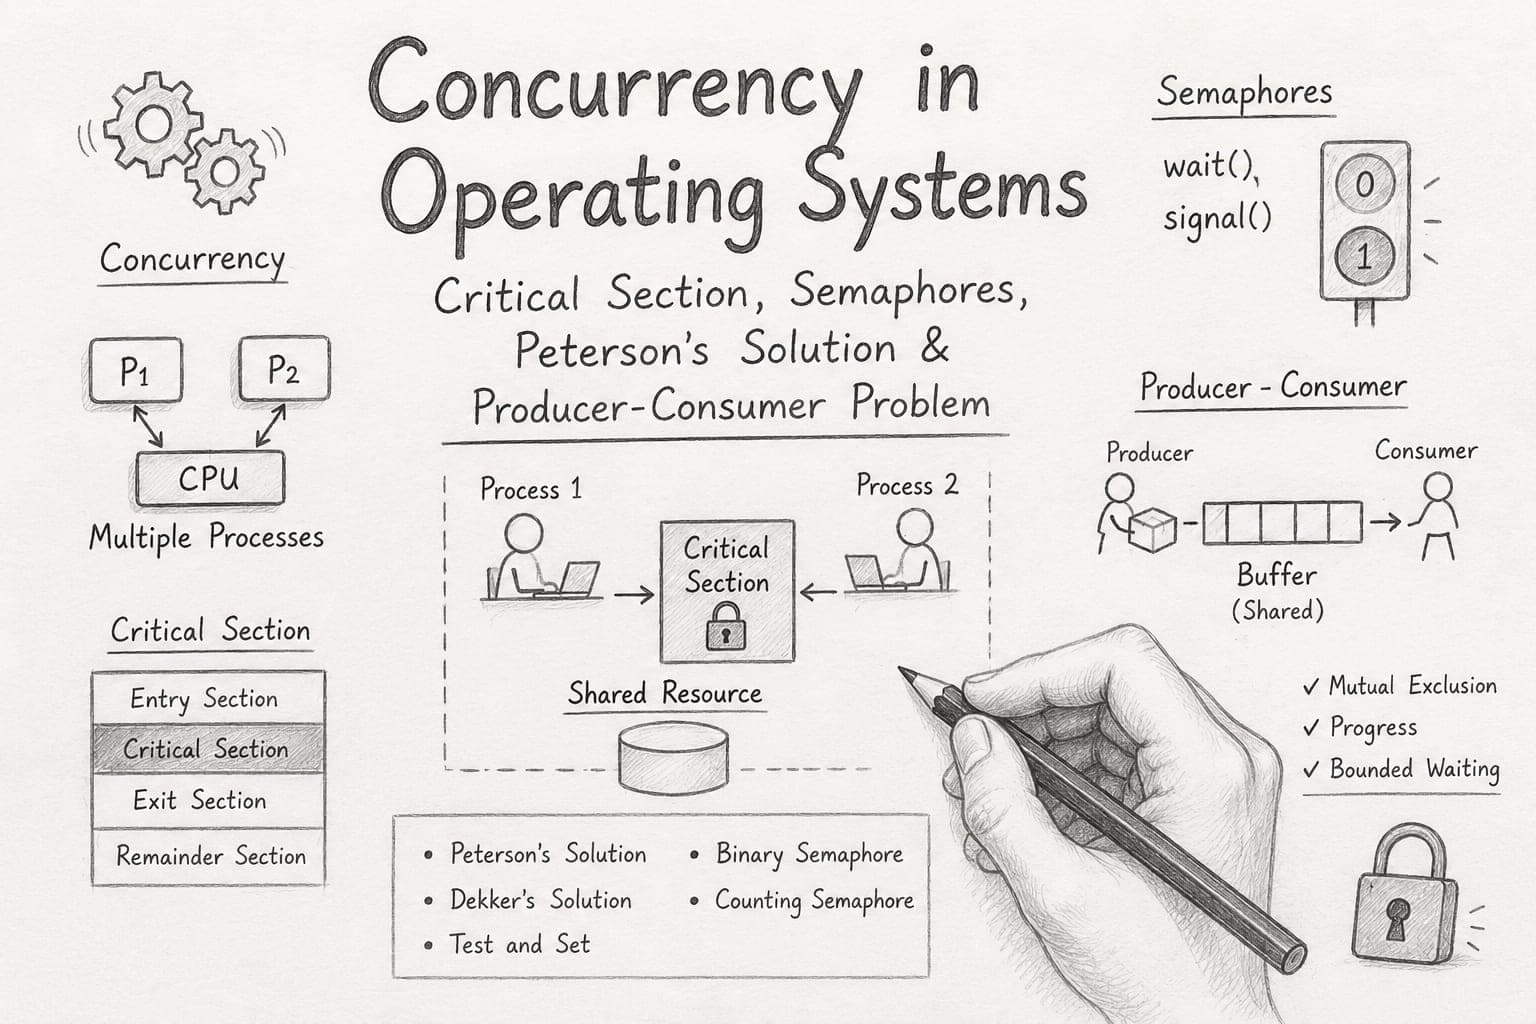 Concurrency in
Operating Systems
Critical Section, Semaphores,
Peterson's Solution &
Producer-Consumer Problem
Concurrency
P1
P2
CPU
Multiple Processes
Critical Section
Entry Section
Critical Section
Exit Section
Remainder Section
Process 1
Process 2
Critical
Section
Shared Resource
• Peterson's Solution
• Dekker's Solution
• Test and Set
• Binary Semaphore
• Counting Semaphore
Semaphores
wait(),
signal()
0
1
Producer - Consumer
Producer
Consumer
Buffer
(Shared)
✓ Mutual Exclusion
✓ Progress
✓ Bounded Waiting